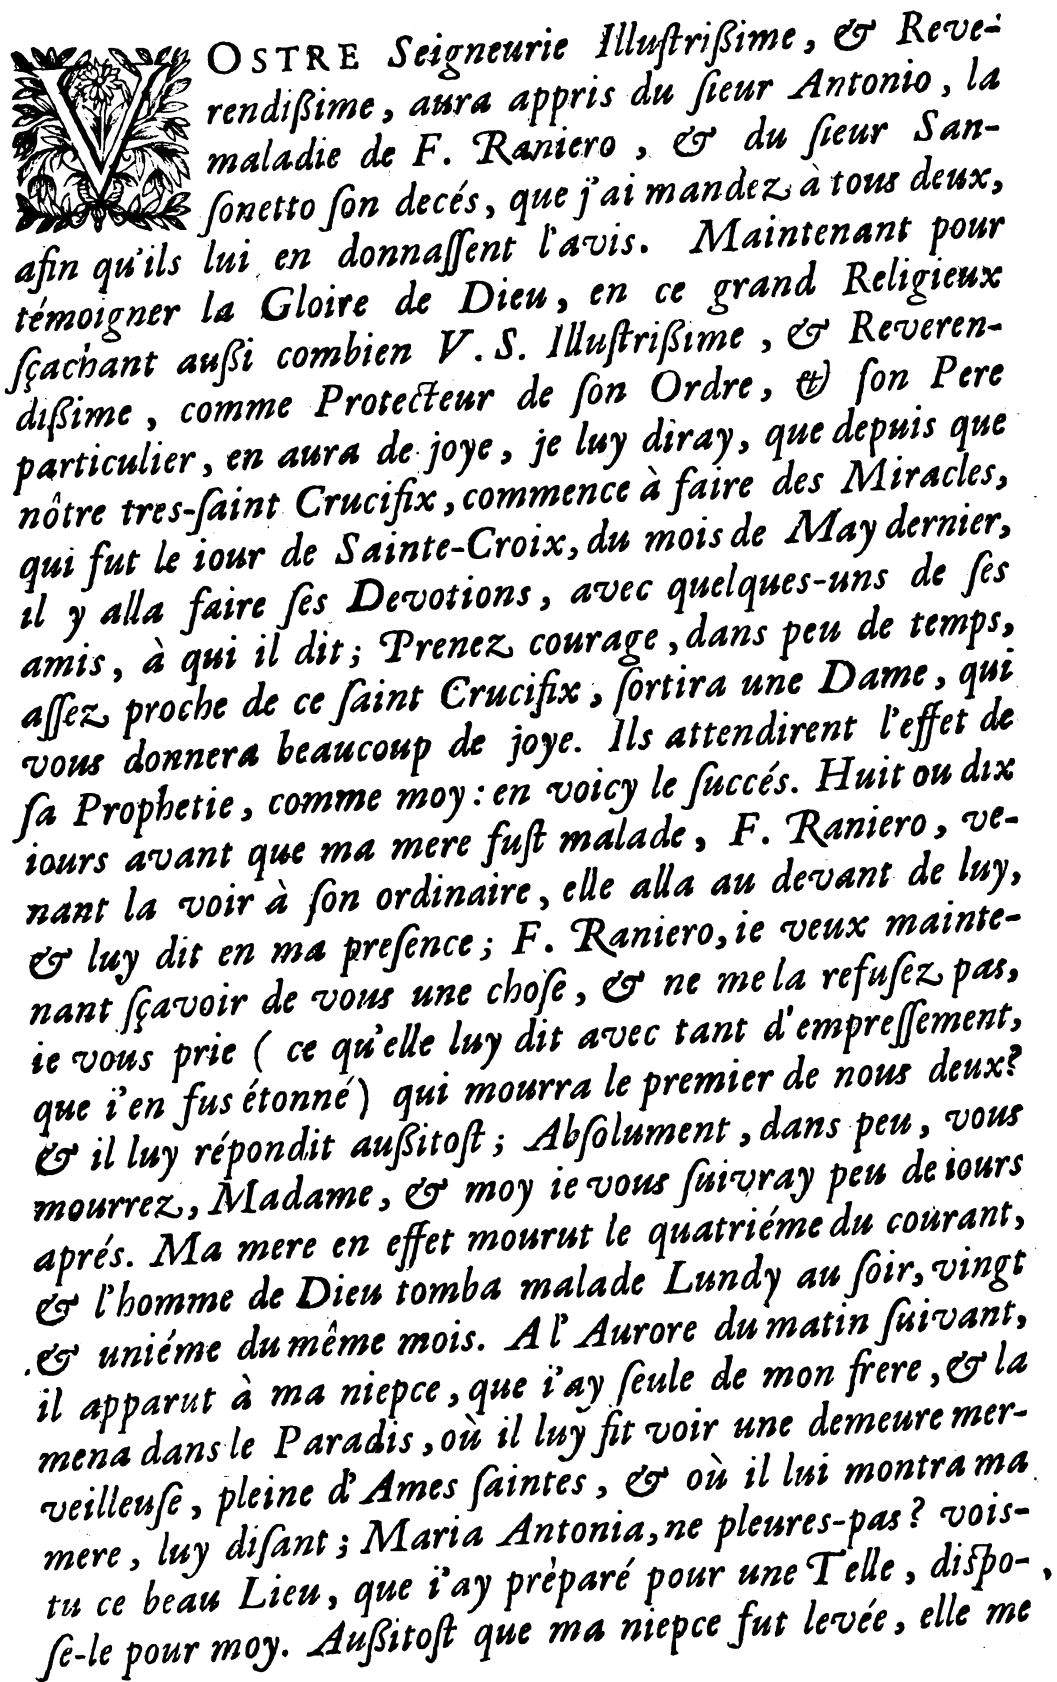 VOSTRE Seigneurie Illustrißime, & Reve-
rendißime, aura appris du sieur Antonio, la
maladie de F. Raniero, & du sieur San-
sonetto son decés, que j'ai mandez à tous deux,
afin qu'ils lui en donnassent l'avis. Maintenant pour
témoigner la Gloire de Dieu, en ce grand Religieux
sçachant außi combien V. S. Illustrißime, & Reveren-
dißime, comme Protecteur de son Ordre, & son Pere
particulier, en aura de joye, je luy diray, que depuis que
nôtre tres-saint Crucifix, commence à faire des Miracles,
qui fut le iour de Sainte-Croix, du mois de May dernier,
il y alla faire ses Devotions, avec quelques-uns de ses
amis, à qui il dit; Prenez courage, dans peu de temps,
assez proche de ce saint Crucifix, sortira une Dame, qui
vous donnera beaucoup de joye. Ils attendirent l'effet de
sa Prophetie, comme moy: en voicy le succés. Huit ou dix
iours avant que ma mere fust malade, F. Raniero, ve-
nant la voir à son ordinaire, elle alla au devant de luy,
& luy dit en ma presence; F. Raniero, ie veux mainte-
nant sçavoir de vous une chose, & ne me la refusez pas,
ie vous prie ( ce qu'elle luy dit avec tant d'empressement,
que i'en fus étonné) qui mourra le premier de nous deux?
& il luy répondit außitost; Absolument, dans peu, vous
mourrez, Madame, & moy ie vous suivray peu de iours
aprés. Ma mere en effet mourut le quatriéme du courant,
& l'homme de Dieu tomba malade Lundy au soir, vingt
& uniéme du même mois. A l'Aurore du matin suivant,
il apparut à ma niepce, que i'ay seule de mon frere, & la
mena dans le Paradis, où il luy fit voir une demeure mer-
veilleuse, pleine d'Ames saintes, & où il lui montra ma
mere, luy disant; Maria Antonia, ne pleures-pas? vois-
tu ce beau Lieu, que i'ay prèparé pour une Telle, dispo-
se-le pour moy. Außitost que ma niepce fut levée, elle me